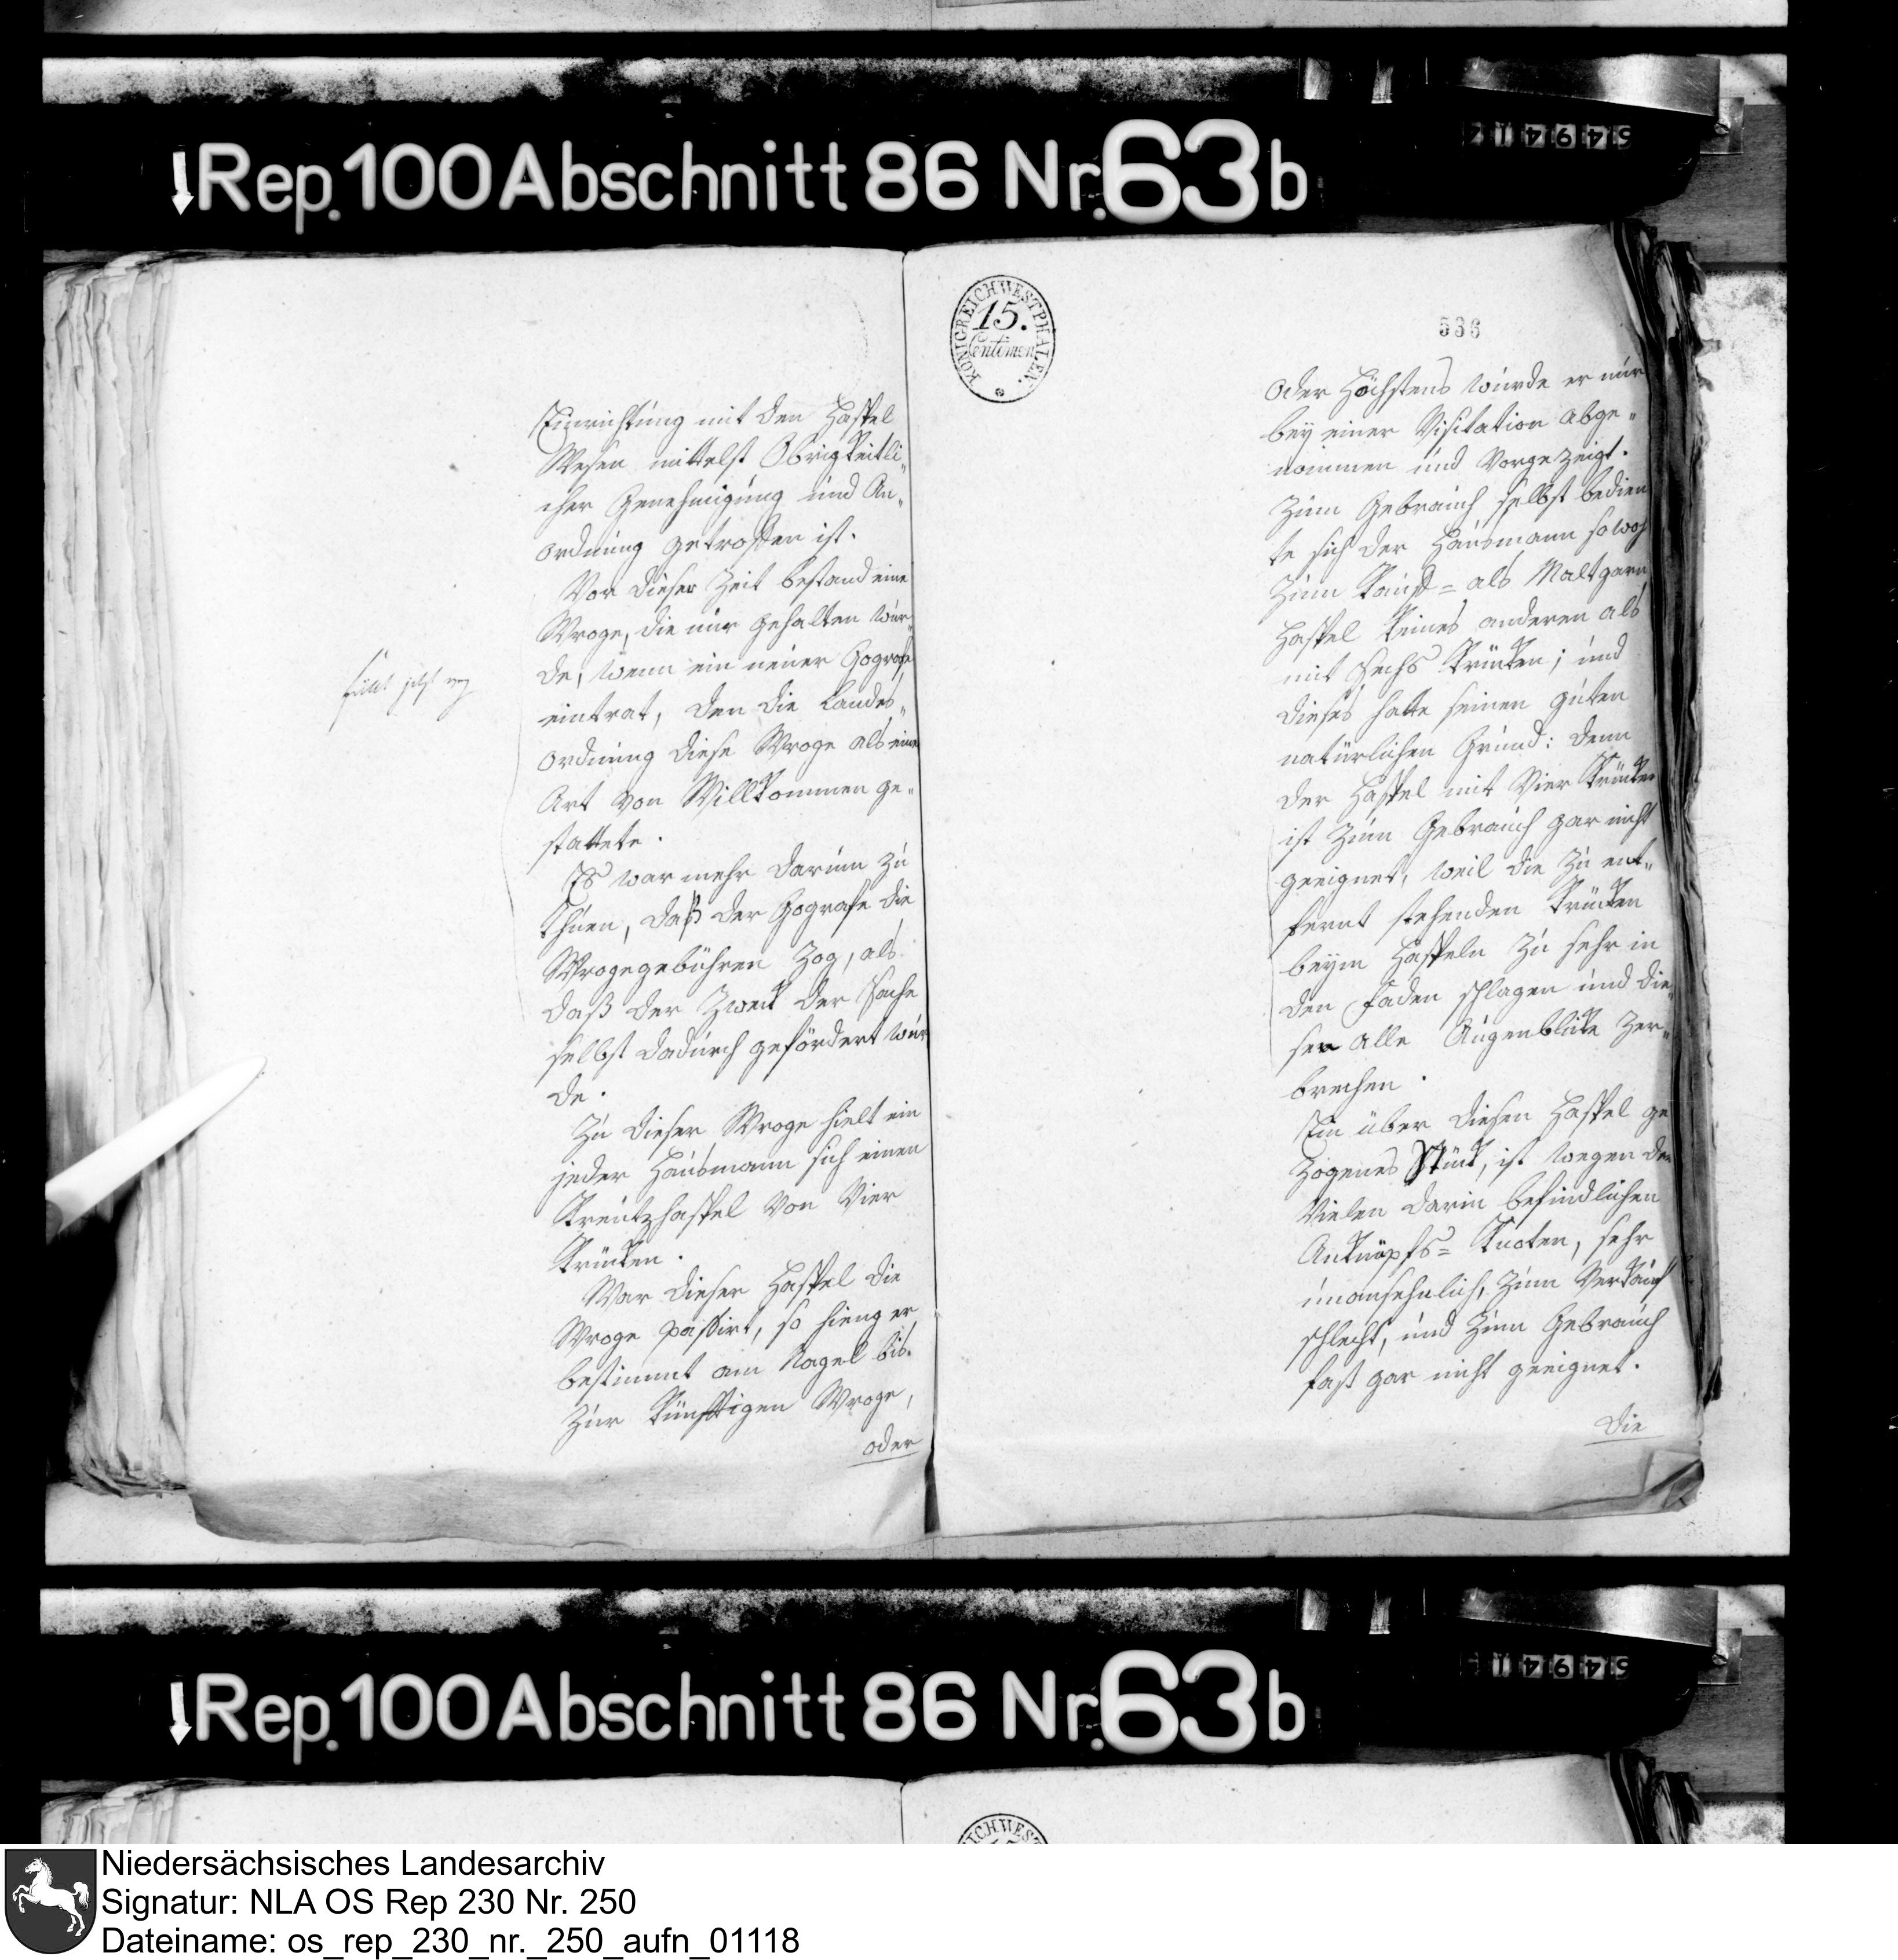 Rep. 100 Abschnitt 86 Nr. 63 b
Einrichtung mit den Haspel
Wesen mittelst Obrigkeitli„
cher Genehmigung und An„
ordnung getroffen ist.
Vor dieser Zeit bestand eine
Wroge, die nur gehalten wur„
de, wenn ein neuer Gografe
eintrat, den die Landes„
ordnung diese Wroge als eine
Art von Willkommen ge„
stattete.
Es war mehr darum zu
thuen, daß der Gografe die
Wrogegebühren zog, als
daß der Zweck der Sache
selbst dadurch gefördert wur
de.
Zu dieser Wroge hielt ein
jeder Hausmann sich einen
Kreutzhaspel von Vier
Krücken.
War dieser Haspel die
Wroge passirt, so hieng er
bestimmt am Nagel bis
zur künfftigen Wroge,
oder
fällt jetzt weg
KÖNIGREICH WESTPHALEN.
15.
Centimen
536
oder höchstens wurde er nur
bey einer Visitation abge„
nommen und vorgezeigt.
Zum Gebrauch selbst bedien
te sich der Hausmann sowohl
zum Kauf= als Moltgarn
Haspel keines anderen als
mit sechs Krücken; und
dieses hatte seinen guten
natürlichen Grund: denn
der Haspel mit Vier Krücken
ist zum Gebrauch gar nicht
geeignet, weil die zu ent„
fernt stehenden Krücken
beym Haspeln zu sehr in
den Faden schlagen und die„
sen alle Augenblicke zer„
brechen.
Ein über diesen Haspel ge
zogenes Stück, ist wegen der
Vielen darin befindlichen
Anknüpfs= Knoten, sehr
unansehnlich, zum Verkauf
schlecht, und zum Gebrauch
fast gar nicht geeignet.
Die
Rep. 100 Abschnitt 86 Nr. 63 b
Niedersächsisches Landesarchiv
Signatur: NLA OS Rep 230 Nr. 250
Dateiname: os_rep_230_nr._250_aufn_01118